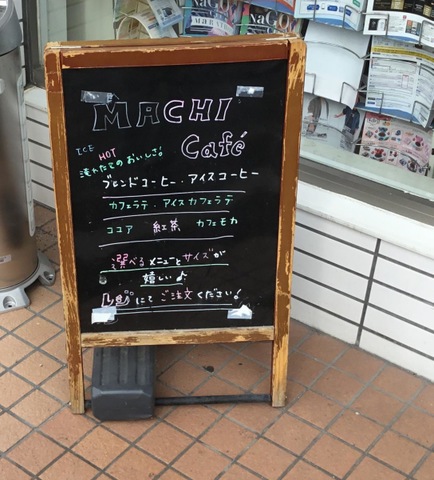 MACHI
café
ICE
HOT
淹れたてのおいしさ!
ブレンドコーヒー・アイスコーヒー
カフェラテ . アイスカフェラテ
ココア 紅茶 カフェモカ
選べるメニューとサイズが
嬉しい♪
レジにてご注文ください!